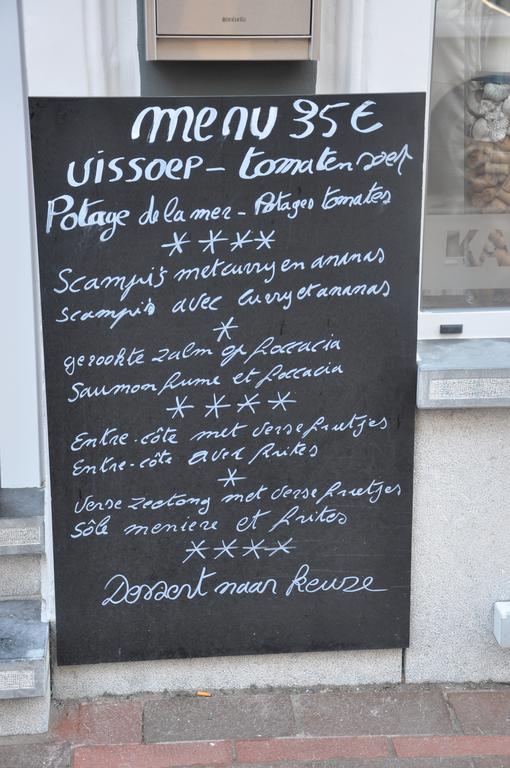 menu 35€
vissoep - tomatensoep
Potage de la mer - Potages tomates
****
Scampi's met curry en ananas
scampi's avec curry et ananas
*
gerookte zalm op foccacia
Saumon fume et foccacia
****
Entre-côte met verse frietjes
Entre-côte avec frites
*
Verse zeetong met verse frietjes
Sôle meniere et frites
****
Dessert naar keuze
KA